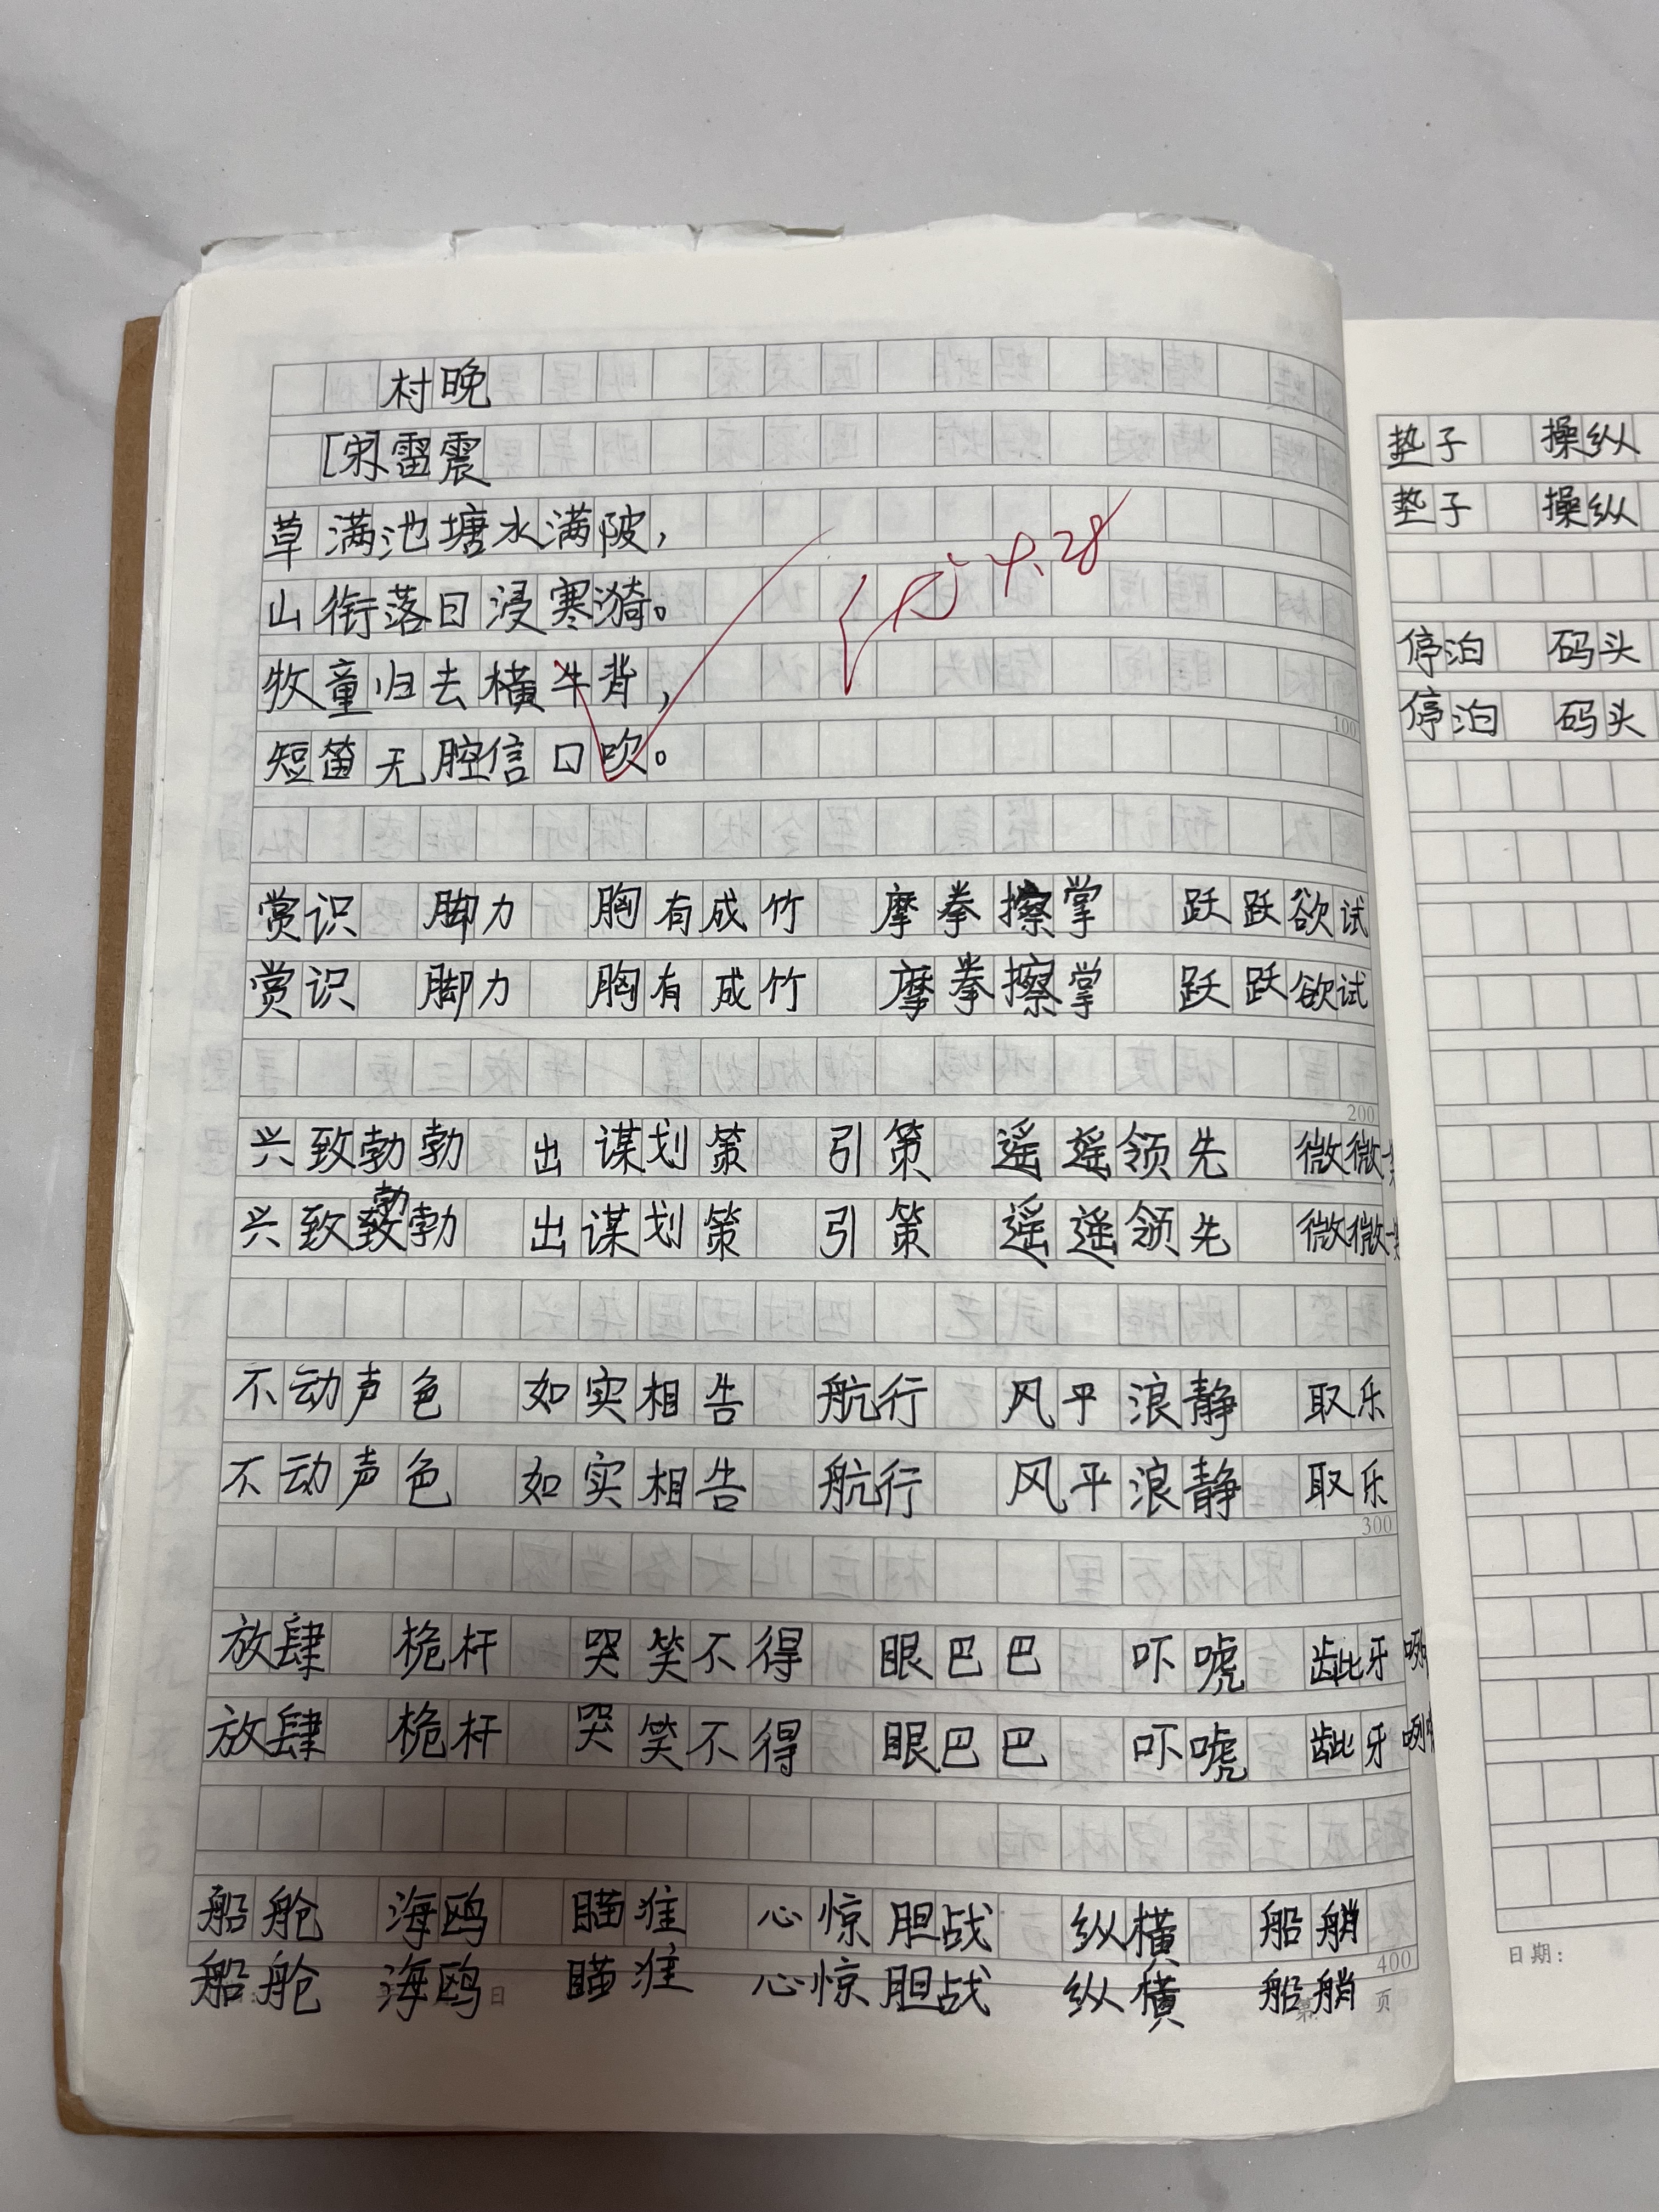 村晚
[宋]雷震
草满池塘水满陂,
山衔落日浸寒漪。
牧童归去横牛背,
短笛无腔信口吹。
4.28
100
赏识 脚力 胸有成竹 摩拳擦掌 跃跃欲试
赏识 脚力 胸有成竹 摩拳擦掌 跃跃欲试
200
兴致勃勃 出谋划策 引策 遥遥领先 微微一
勃
兴致致勃 出谋划策 引策 遥遥领先 微微一
不动声色 如实相告 航行 风平浪静 取乐
不动声色 如实相告 航行 风平浪静 取乐
300
放肆 桅杆 哭笑不得 眼巴巴 吓唬 龇牙咧
放肆 桅杆 哭笑不得 眼巴巴 吓唬 龇牙咧
船舱 海鸥 瞄准 心惊胆战 纵横 船艄
400
船舱 海鸥 瞄准 心惊胆战 纵横 船艄
日 第 页
垫子 操纵
垫子 操纵
停泊 码头
停泊 码头
日期: